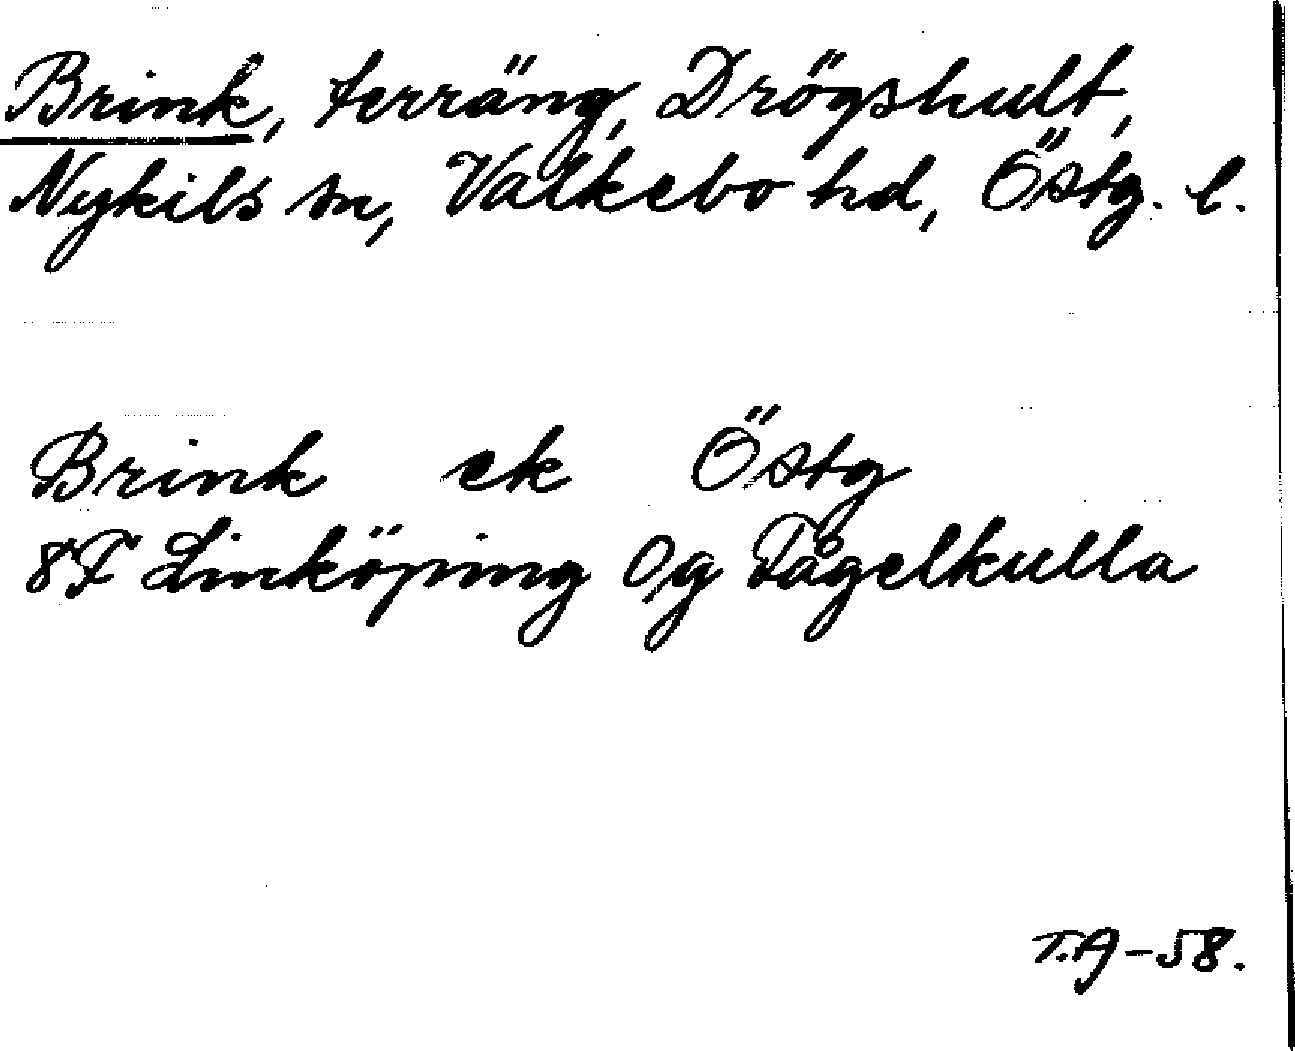 Brink, terräng, Drögshult,
Nykils sn, Valkebo hd, Östg. l.
Brink ek Östg
8F Linköping Og Tågelkulla
T.A-58.